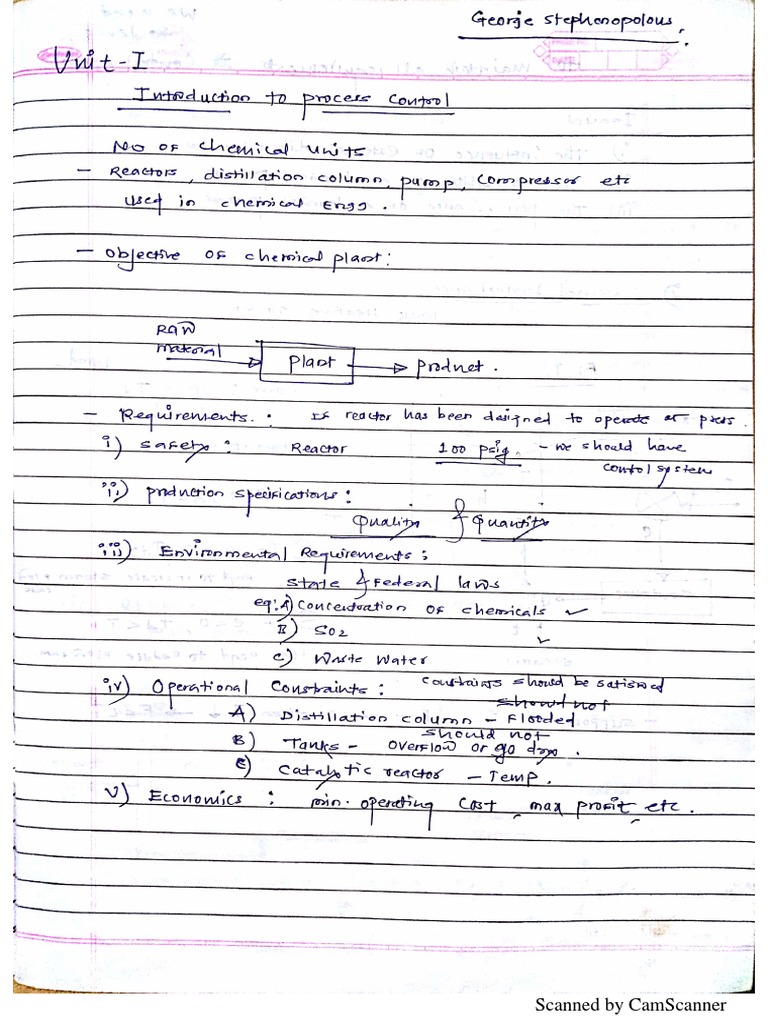 George Stephonopolous.
Unit-I
Introduction to process control
No of chemical units
- Reactors, distillation column, pump, compressor etc
used in chemical Engg.
- Objective of chemical plant:
Raw
material
Plant
Product.
- Requirements: If reactor has been designed to operate at press.
i) Safety: Reactor 100 psig. - we should have
control system
ii) production specifications:
Quality & Quantity
iii) Environmental Requirements:
State & Federal laws
eg: A) Concentration of chemicals ✓
B) SO2 ✓
C) Waste water
iv) Operational Constraints: Constraints should be satisfied
should not
A) Distillation column - Flooded
should not
B) Tanks - overflow or go dry.
C) Catalytic reactor - Temp.
v) Economics: min. operating cost, max profit, etc.
Scanned by CamScanner